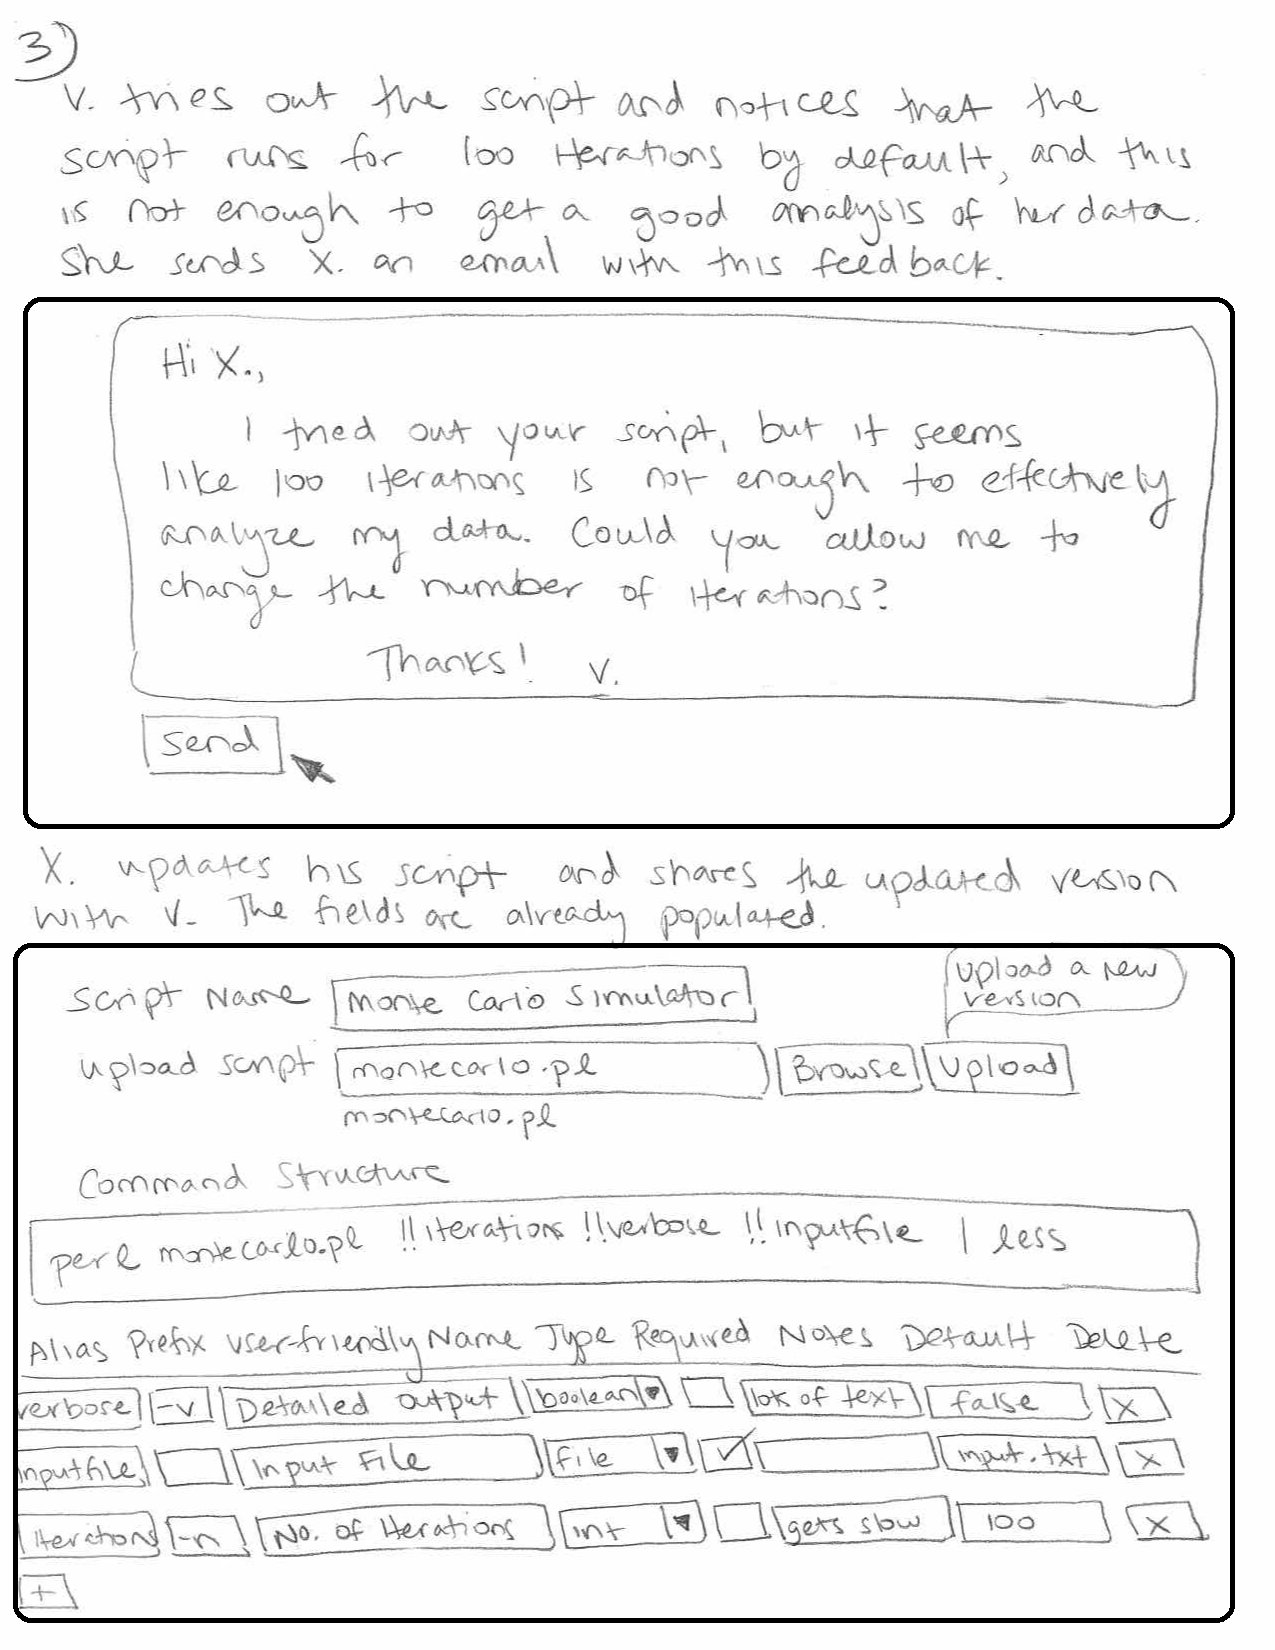 3)
V. tries out the script and notices that the
script runs for 100 iterations by default, and this
is not enough to get a good analysis of her data.
She sends X. an email with this feedback.
Hi X.,
I tried out your script, but it seems
like 100 iterations is not enough to effectively
analyze my data. Could you allow me to
change the number of iterations?
Thanks! V.
Send
X. updates his script and shares the updated version
with V. The fields are already populated.
Upload a new
version
Script Name Monte Carlo Simulator
Upload script montecarlo.pl Browse Upload
montecarlo.pl
Command Structure
perl montecarlo.pl !!iterations !!verbose !!inputfile | less
Alias Prefix User-friendly Name Type Required Notes Default Delete
verbose -v Detailed output boolean lots of text false X
inputfile Input File file ✓ input.txt X
iterations -n No. of Iterations int gets slow 100 X
+